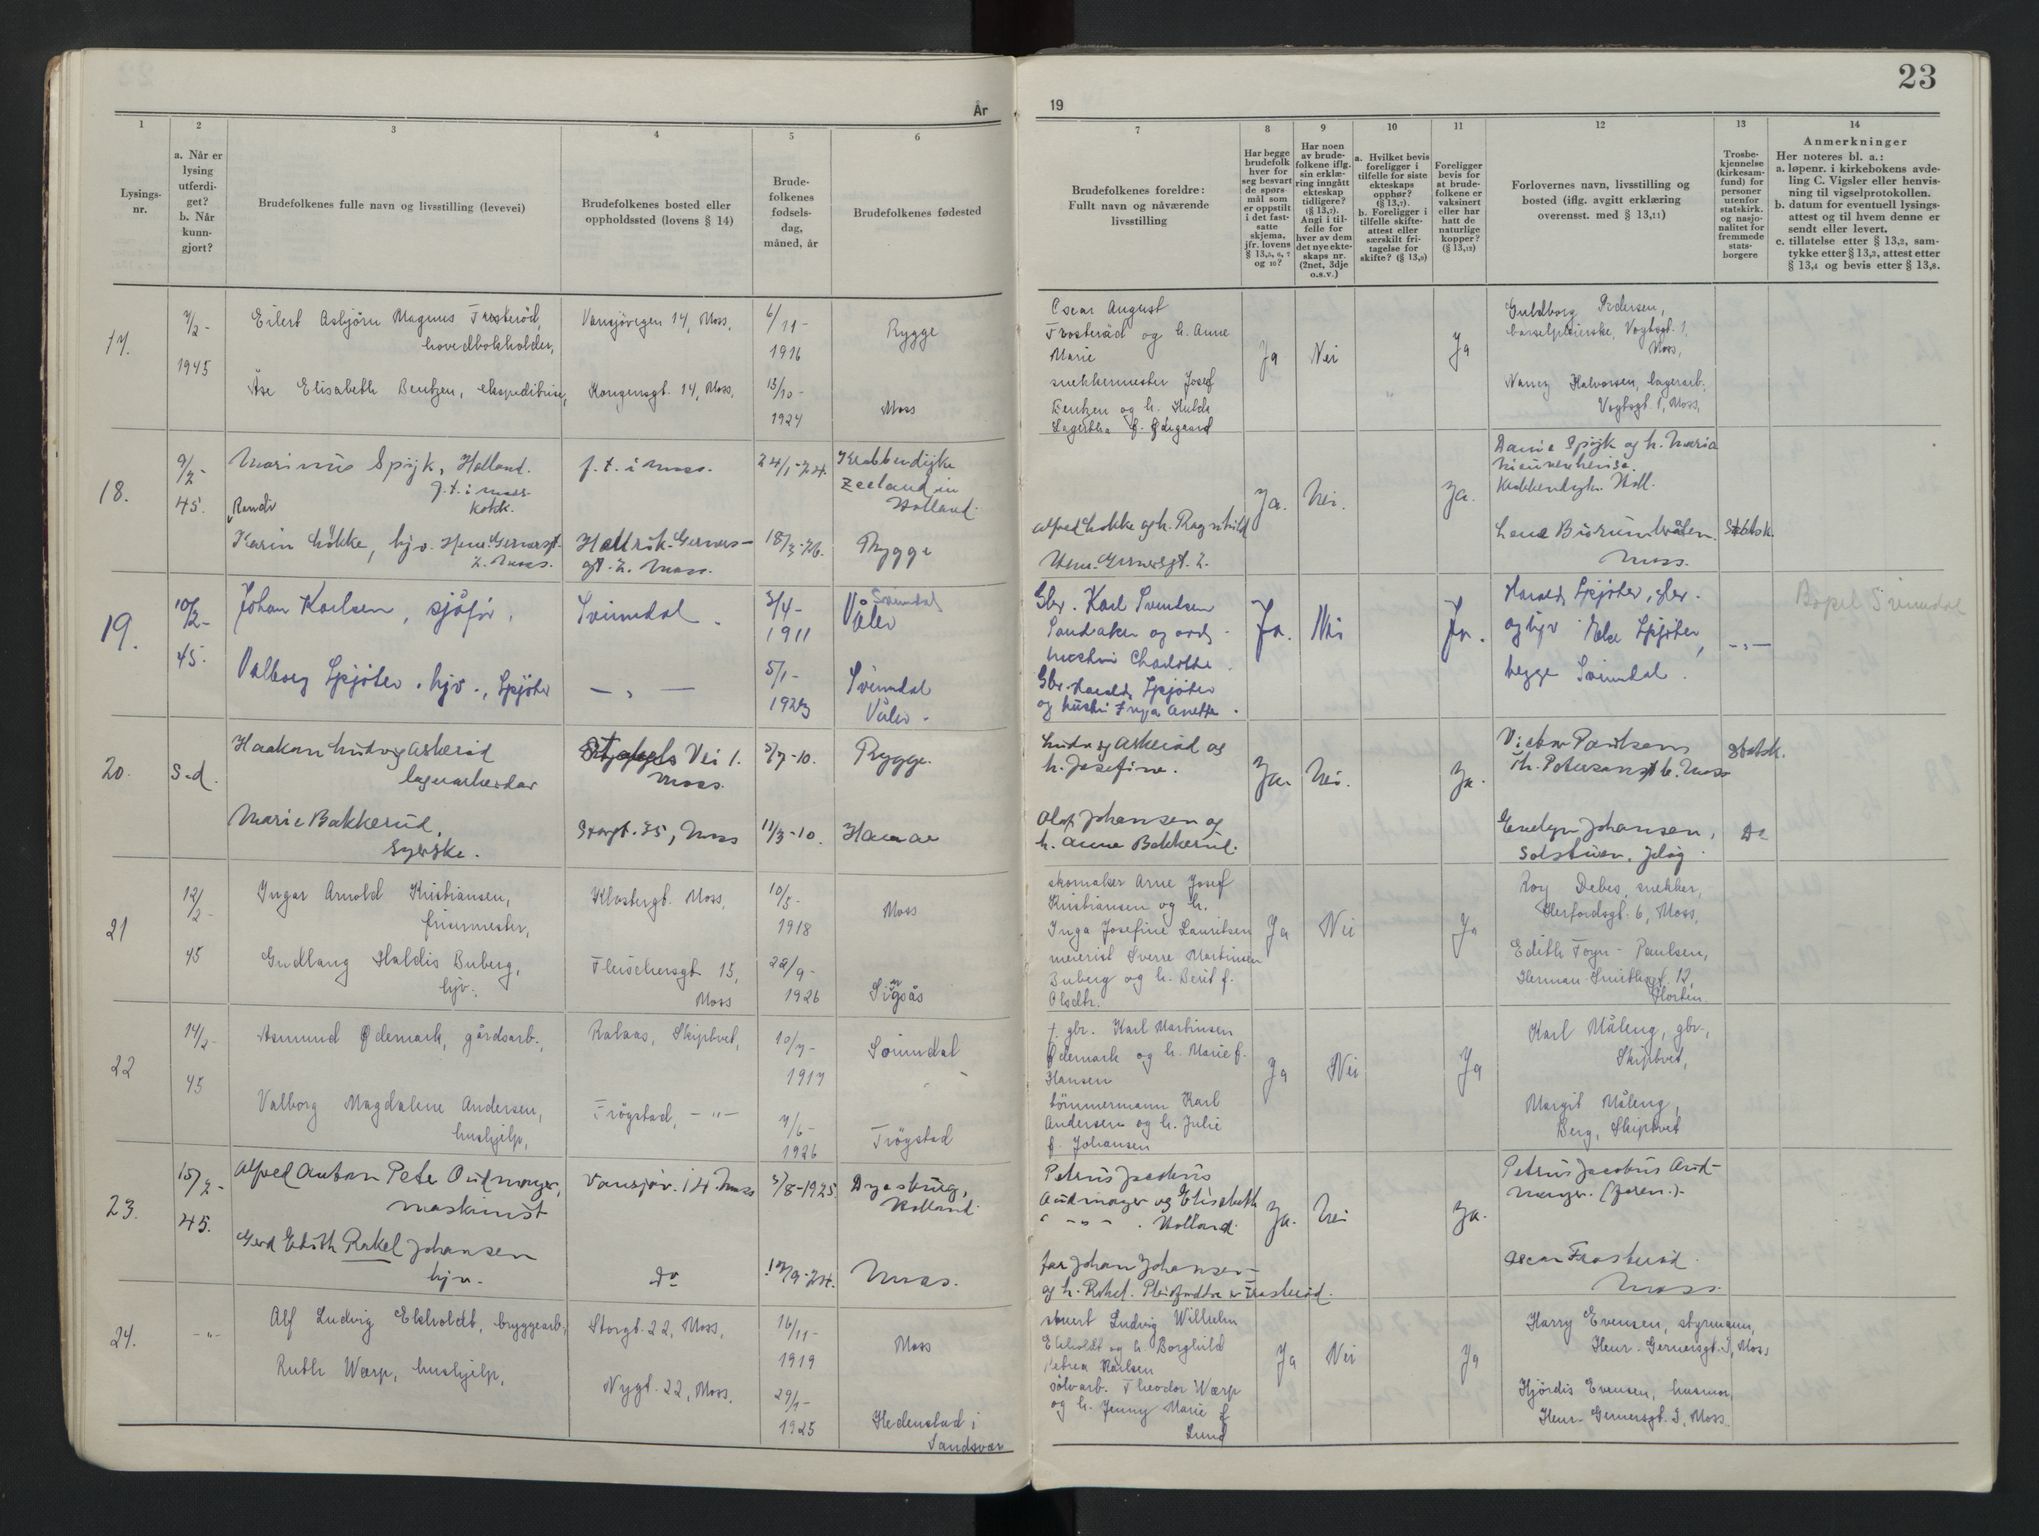 År
1
2
3
4
5
6
Lysings-
nr.
a. Når er
lysing
utferdi-
get?
b. Når
kunn-
gjort?
Brudefolkenes fulle navn og livsstilling (levevei)
Brudefolkenes bosted eller
oppholdssted (lovens § 14)
Brude-
folkenes
fødsels-
dag,
måned, år
Brudefolkenes fødested
17.
7/2-
1945
Eilert Asbjörn Magnus Frosteröd,
hovedbokholder,
Vansjövegen 14, Moss,
6/11-
1916
Rygge
Åse Elisabeth Bentzen, ekspeditrise,
Kongensgt. 14, Moss,
13/10-
1924
Moss
18.
9/2-
45.
Marinus Spijk, Holland.
f.t. i Moss
kokk.
f.t. i Moss.
24/1-24.
Krabbendijke
Zeeland in
Holland.
Randi
Karin Løkke, hjv. Henr. Gernersgt.
2. Moss.
Henrik Gerners-
gt. 2. Moss.
18/3-26.
Rygge
19.
10/2-
45.
Johan Karlsen, sjåfør,
Svinndal.
3/4-
1911
Svinndal
Våler
Valborg Spjøter, hjv., Spjøter
— " —
5/1-
1923
Svinndal
Våler.
20.
S.d.
Haakon Ludvig Askerød
lagerarbeider
Vei 1.
Moss.
5/7-10.
Rygge.
Marie Bakkerud,
syerske.
Storgt. 35, Moss
11/3-10.
Hamar
21
12/2-
45
Ingar Arnold Kristiansen,
frisørmester,
Klostergt. Moss,
10/5-
1918
Moss
Gudlaug Haldis Buberg,
hjv.
Fleischersgt 15,
Moss
22/9-
1926
22
14/2-
45
Asmund Ødemark, gårdsarb.,
Skiptvet,
10/7-
1917
Svinndal
Valborg Magdalene Andersen,
hushjelp,
Trögstad, -"-
7/6-
1926
Trögstad
23.
15/2-
45.
Alfred Anton Peter Oudmayer,
maskinist
Vansjøv. 14. Moss
5/8-1925
Holland.
Gerd Edith Rakel Johansen
hjv.
Do
19/9-24.
Moss.
24.
-"-
Alf Ludvig Ekholdt, bryggearb.,
Storgt. 22, Moss,
16/11-
1919
Moss
Ruth Wærp, hushjelp,
Nygt. 22, Moss,
29/1-
1925
Hedenstad i
Sandsvær
23
19
7
8
9
10
11
12
13
14
Brudefolkenes foreldre:
Fullt navn og nåværende
livsstilling
Har begge
brudefolk
hver for
seg besvart
de spørs-
mål som
er oppstilt
i det fast-
satte
skjema,
jfr. lovens
§ 13,5, 6, 7
og 10?
Har noen
av brude-
folkene iflg.
sin erklæ-
ring inngått
ekteskap
tidligere?
(§ 13,7).
Angi i til-
felle for
hver av dem
det nye ekte-
skaps nr.
(2net, 3dje
o.s.v.)
a. Hvilket bevis
foreligger i
tilfelle for siste
ekteskaps
opphør?
(§ 13,7).
b. Foreligger i
tilfelle skifte-
attest eller
særskilt fri-
tagelse for
skifte? (§ 13,9)
Foreligger
bevis for
at brude-
folkene er
vaksinert
eller har
hatt de
naturlige
kopper?
(§ 13,12)
Forlovernes navn, livsstilling og
bosted (iflg. avgitt erklæring
overensst. med § 13,11)
Trosbe-
kjennelse
(kirkesam-
fund) for
personer
utenfor
statskirk.
og nasjo-
nalitet for
fremmede
stats-
borgere
Anmerkninger
Her noteres bl. a.:
a. løpenr. i kirkebokens avde-
ling C. Vigsler eller henvis-
ning til vigselprotokollen.
b. datum for eventuell lysings-
attest og til hvem denne er
sendt eller levert.
c. tillatelse etter § 13,2, sam-
tykke etter § 13,3, attest etter
§ 13,4 og bevis etter § 13,8.
Oscar August
Frosteröd og h. Anne
Marie
Ja
Nei
Ja
Guldborg Pedersen,
barselpleierske, Vogtsgt. 1,
Moss,
snekkermester Josef
Bentzen og h. Hulda
Lagertha f. Ødegaard
"
Nancy Halvorsen, lagerarb.
Vogtsgt. 1, Moss,
Ja.
Nei.
Ja.
Danie Spijk og h. Maria
Holl.
Alfred Løkke og h. Ragnhild
Henr. Gernersgt. 2.
Lene
Moss.
Statsk.
Gbr. Karl Svendsen
Sandaker og
hustru Charlotte.
Ja.
Nei
Ja.
Harald Spjøter, gbr.
og hjv. Else Spjøter,
begge Svinndal.
-"-
Bspel Svinndal
Gbr. Harald Spjøter
og hustru Anette.
Ludvig Askerød og
h. Josefine.
Ja.
Nei.
Ja.
Victor Paulsen
Th. Petersensgt 6. Moss
Statsk.
Olaf Johansen og
h. Anne Bakkerud.
Evelyn Johansen,
Solstuen. Jeløy.
Do
skomaker Arne Josef
Kristiansen og h.
Inga Josefine Lauritsen
Ja
Nei
Ja
Roy Debes, snekker,
Herfordsgt. 6, Moss,
meierist Sverre Martinsen
Buberg og h. Berit f.
Olsdtr.
Edith Foyn-Paulsen,
Herman Smithsgt. 12,
Horten.
f. gbr. Karl Martinsen
Ødemark og h. Marie f.
Hansen
Ja
Nei
Ja
Karl Måleng, gbr.,
Skiptvet,
tömmermann Karl
Andersen og h. Julie
f. Johansen
Margit Måleng,
Berg, Skiptvet
Petrus Jacobus
Oudmayer og Elisabeth
" -"- . Holland.
Ja.
Nei
Ja.
Petrus Jacobus Oud-
mayer. (faren).
far Johan Johansen
og h. Rakel. Pleieforeldre er Frosterød.
Oscar Frosterød.
Moss.
stuert Ludvig Wilhelm
Ekholdt og h. Borghild
Petrea Karlsen
Ja
Nei
Ja
Harry Evensen, styrmann,
Henr. Gernersgt. 3, Moss
sölvarb. Theodor Wærp
og h. Jenny Marie f
Lund
Hjördis Evensen, husmor,
Henr. Gernersgt. 3, Moss.